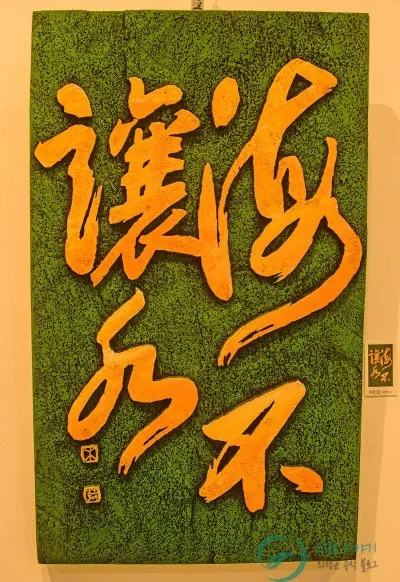 海不
讓水